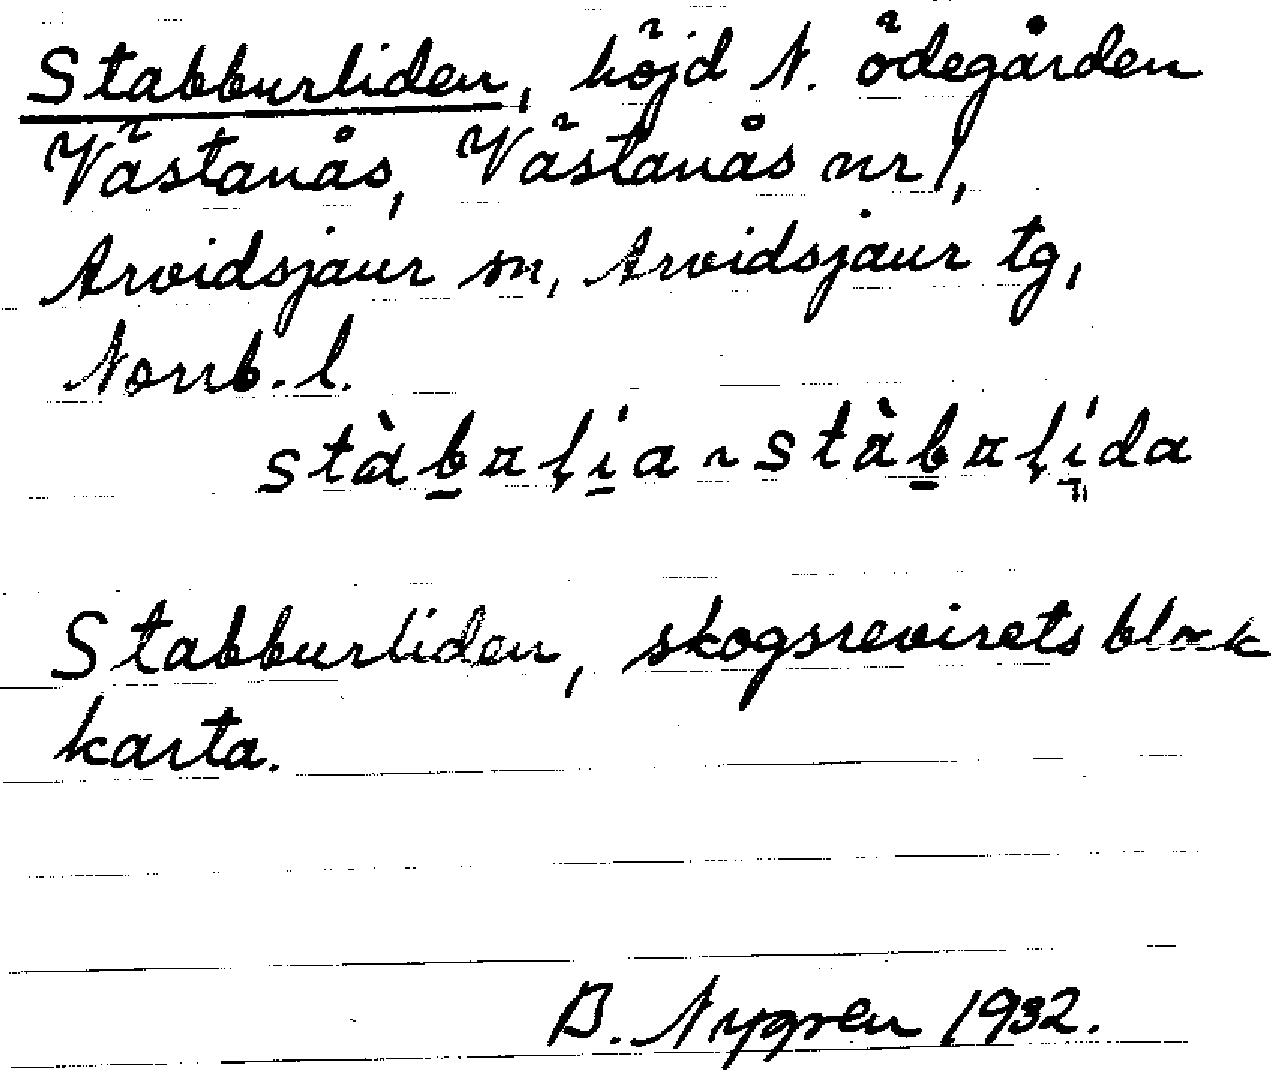 Stabburliden, höjd N. ödegården
Västanås, Västanås nr 1,
Arvidsjaur sn, Arvidsjaur tg,
Norrb. l.
stàb̲ɑļi̲a ~ stàb̲ɑļida
Stabburliden, skogsrevirets block
karta.
B. Nygren 1932.